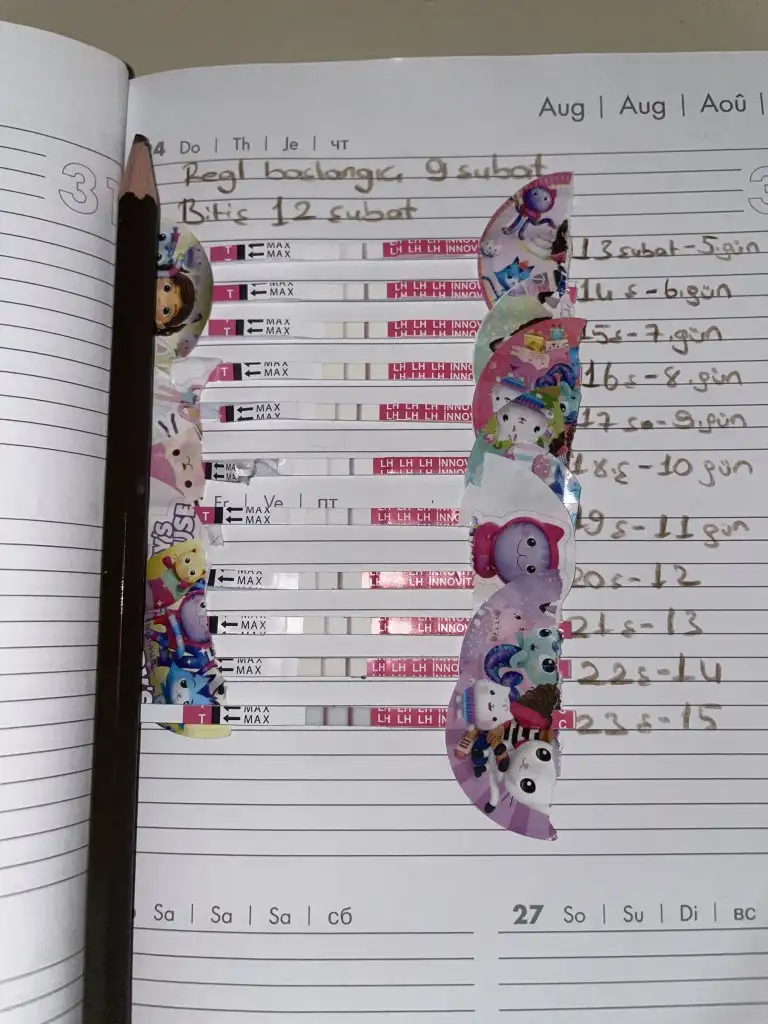 Aug | Aug | Aoû |
4 Do | Th | Je | чт
Regl baslangıc, 9 subat
Bitis 12 subat
T MAX MAX LH LH LH INNOV LH LH LH INNOV 13 subat-5.gün
T MAX MAX LH LH LH INNOV 14 s-6.gün
T MAX MAX LH LH LH INNOV 15s-7.gün
T MAX MAX LH LH LH INNO 16s-8.gün
MAX MAX LH LH LH INNOV 17 s-9.gün
MA LH LH LH INNOV 18.s-10 gün
Fr | Ve | пт
T MAX MAX LH LH LH INNO 19 s-11 gün
MAX MAX LH LH INNOVIT 20s-12
MAX MAX LH LH INNOV 21s-13
MAX MAX LH LH LH INNOV 22s-14
T MAX MAX LH LH LH INNOV C 23s-15
Sa | Sa | Sa | сб
27 So | Su | Di | вс